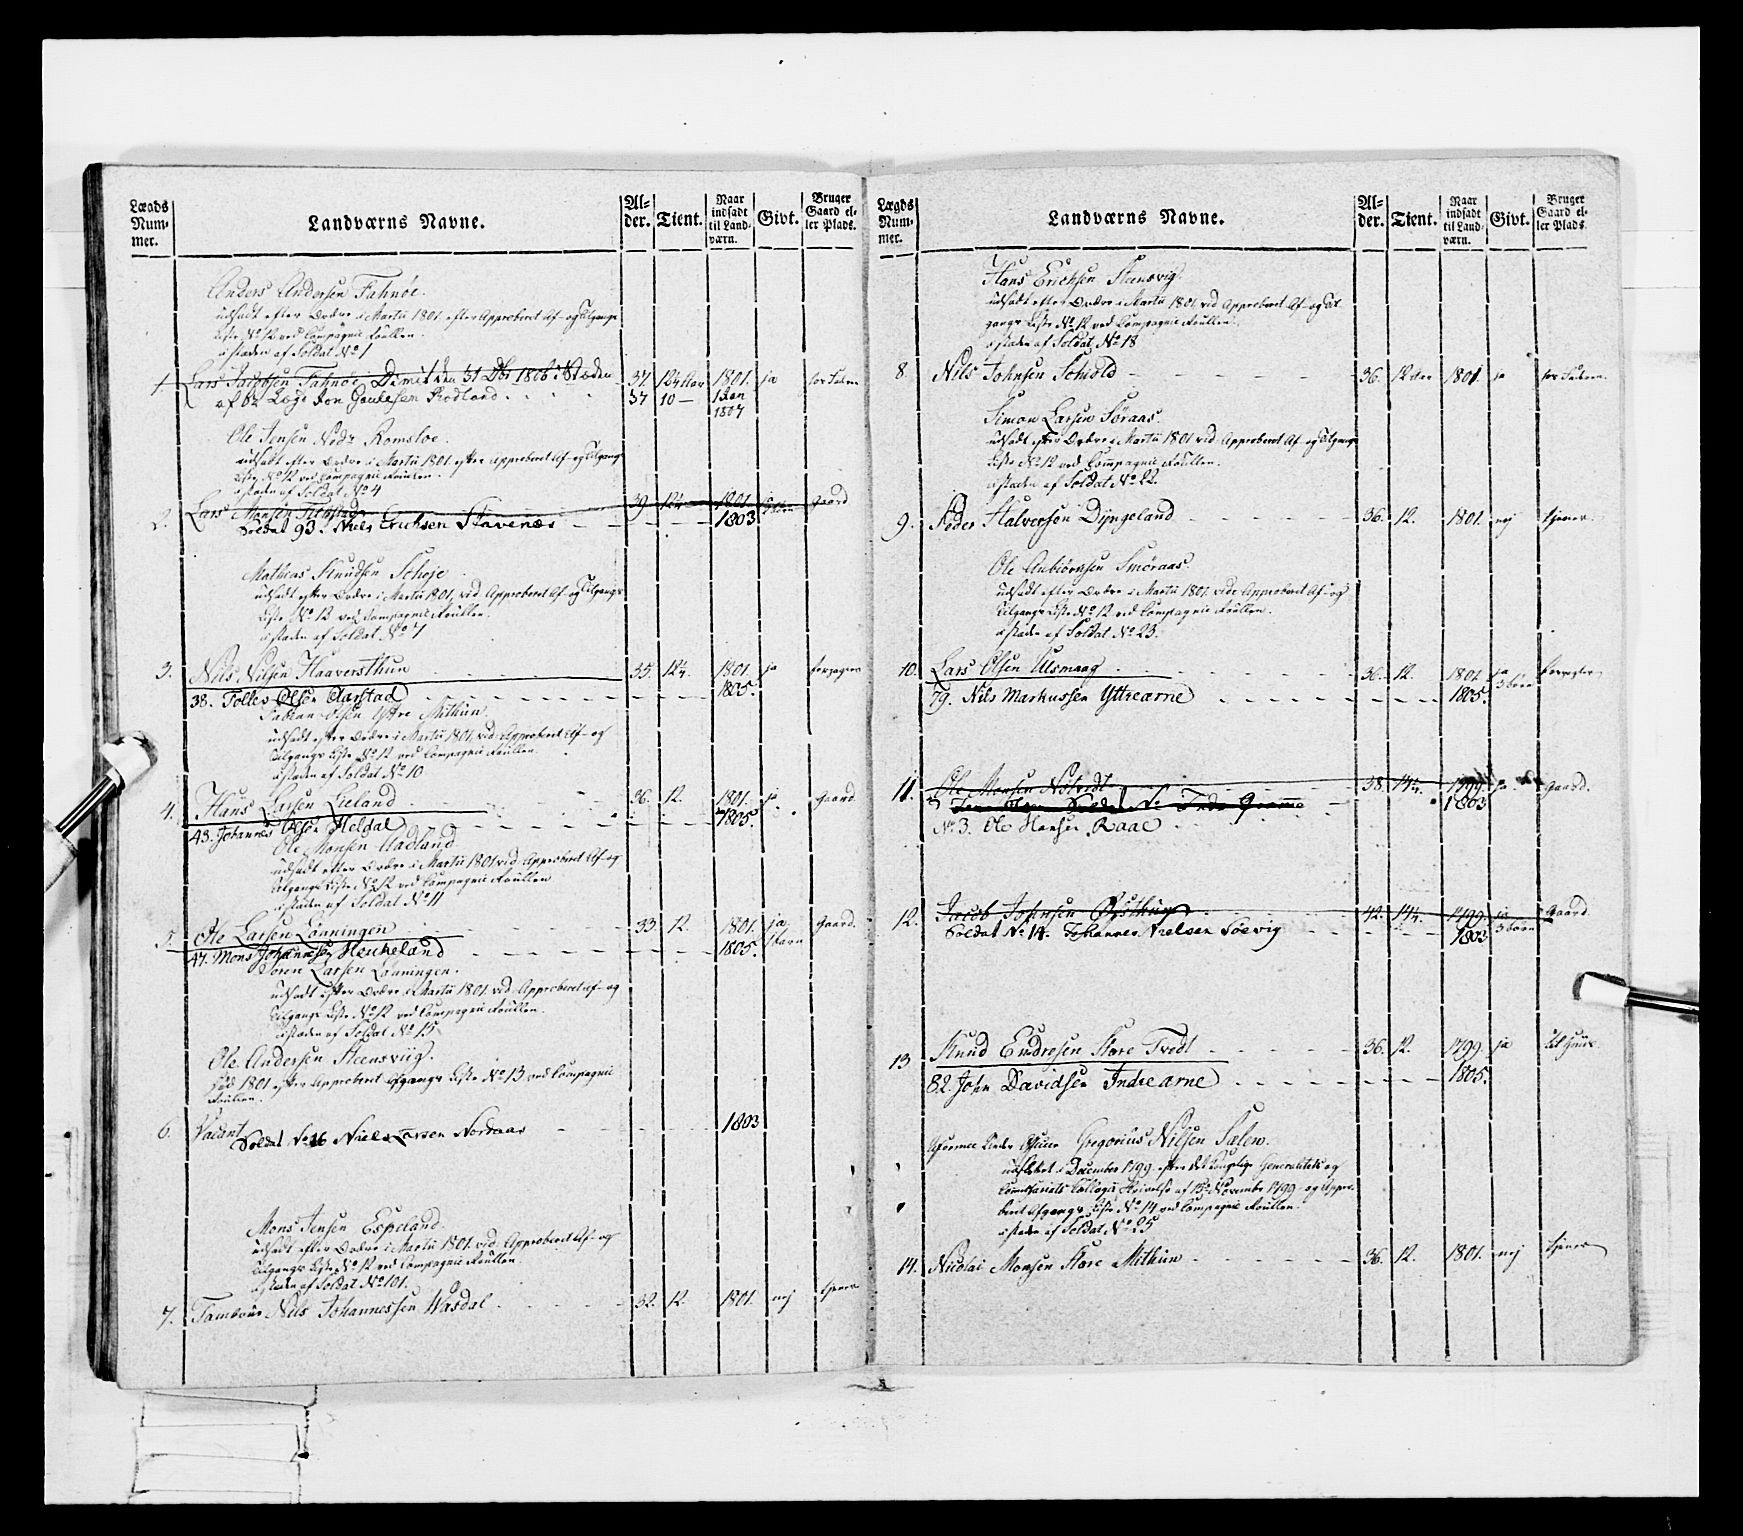 Lægds Num- mer.
Landværns Navne.
Al- der.
Tient.
Naar indsadt til Land- værn.
Givt.
Bruger Gaard el- ler Plads.
Anders Andersen Fahnøe.
udsadt efter Ordre i Martii 1801. efter Approberet Af- og Tilgangs
Liste No 12 ved Compagnie Roullen.
istæden af Soldat No 1
1. Lars Jacobsen Fahnøe Dimit den 31 Dbr 1806 i Stæden 37. 12 4/12 Aar 1801. ja
af 62 Lægd Jon Goutesen Rodland 37 10 — 1 Jan 1807
Ole Jensen Nedr Romsloe.
udsadt efter Ordre i Martii 1801. efter Approberet Af- og Tilgangs
Liste No 12 ved Compagnie Roullen.
istæden af Soldat No 4
2. Lars Monsen 39. 1801. Gaard
Soldat 93. Niels Erichsen Stavenæs 1803
Mathias Knudsen Schoje
udsadt efter Ordre i Martii 1801, ved Approberet Af- og Tilgangs
Liste No 12 ved Compagnie Roullen.
istæden af Soldat No 7
3. Nils Nilsen Haaversthun 35. 1801. ja
38. Tollev Olsen Aarstad 1805.
Fabian Olsen Ystre Mithun
udsadt efter Ordre i Martii 1801, ved Approberet Af- og
Tilgangs Liste No 12 ved Compagnie Roullen.
istæden af Soldat No 10
4. Hans Larsen Lieland 36. 12. 1801. ja Gaard
43. Johannes Olsen Heldal 1805.
Ole Monsen Hadland
udsadt efter Ordre i Martii 1801 ved Approberet Af- og
Tilgangs Liste No 12 ved Compagnie Roullen
istæden af Soldat No 11
5. Ole Larsen Lønningen 33. 12. 1801. ja Gaard.
47. Mons Johannesen Heukeland 1805.
Søren Larsen Lønningen.
udsadt efter Ordre i Martii 1801. ved Approberet af- og
Tilgangs Liste No 12 ved Compagnie Roullen.
istæden af Soldat No 15
Ole Andersen Steensviig.
død 1801 efter Approberet Afgangs Liste No 13 ved Compagnie
Roullen.
6. Vacant 1803
Soldat No 16 Niels Larsen Nordaas
Mons Jensen Espeland.
udsadt efter Ordre i Martii 1801. ved Approberet Af- og
Tilgangs Liste No 12 ved Compagnie Roullen.
istæden af Soldat No 101.
7. Tambour Nils Johannessen Wasdal 32. 12. 1801. nej tjener
Lægds Num- mer.
Landværns Navne.
Al- der.
Tient.
Naar indsadt til Land- værn.
Givt.
Bruger Gaard el- ler Plads.
Hans Erichsen Steensvig.
udsadt efter Ordre i Martii 1801. ved Approberet Af- og Til
gangs Liste No 12 ved Compagnie Roullen.
istæden af Soldat No 18
8. Nils Johnsen Schiold 36. 12 Aar 1801. ja
Simon Larsen Søraas.
udsadt efter Ordre i Martii 1801 ved Approberet Af- og Tilgangs
Liste No 12 ved Compagnie Roullen.
istæden af Soldat No 22.
9. Peder Halversen Dyngeland 36. 12. 1801. nej tjener.
Ole Anbiørnsen Smøraas
udsadt efter Ordre i Martii 1801. ved Approberet Af- og
Tilgangs Liste No 12 ved Compagnie Roullen.
istæden af Soldat No 23.
10. Lars Olsen Ulsmaag 36. 12. 1801. ja 3 børn
79. Nils Markussen Yttrearne 1805.
11. Ole Monsen 38. 14 1799. ja Gaard.
1803
No 3. Ole Hansen Raae
12. Jacob Johnsen Østhun 42. 14 1799. ja 3 børn Gaard
Soldat No 14. Johannes Nielsen Søevig 1803
13 Knud Endresen Store Tvedt 36. 12. 1799. ja
82. John Davidsen Indrearne 1805.
Gregorius Nilsen Sælen.
udsledet i December 1799 efter det Kongelige Generalitets og
Comissariats Collegii Skrivelse af 13de November 1799 og Appro-
beret Afgangs Liste No 14 ved Compagnie Roullen.
istæden af Soldat No 25
14. Nicolai Monsen Store Mithun 36. 12. 1801. nej tjener